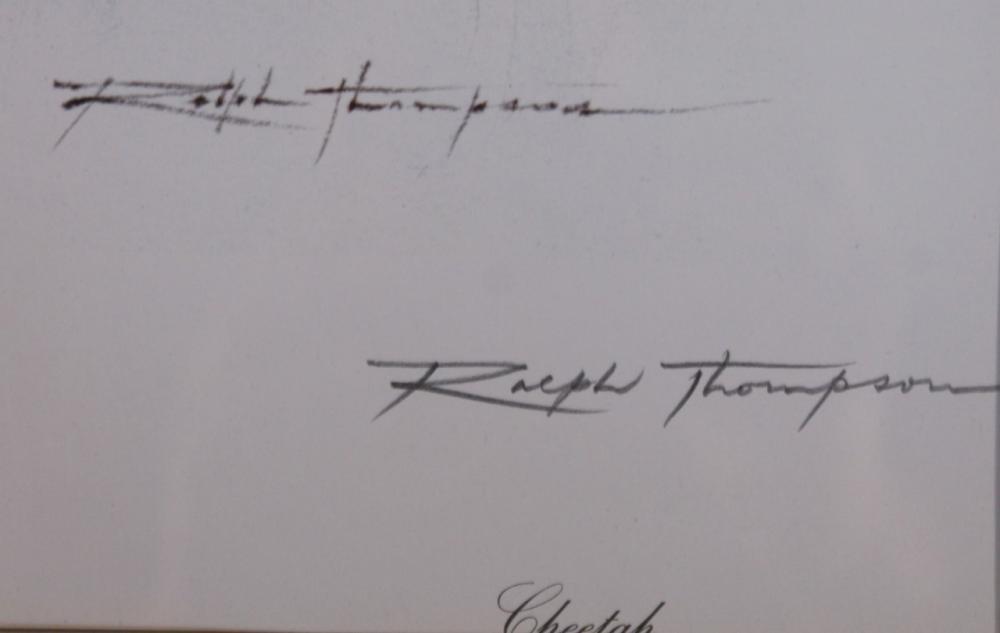 Ralph Thompson
Ralph Thompson
Cheetah